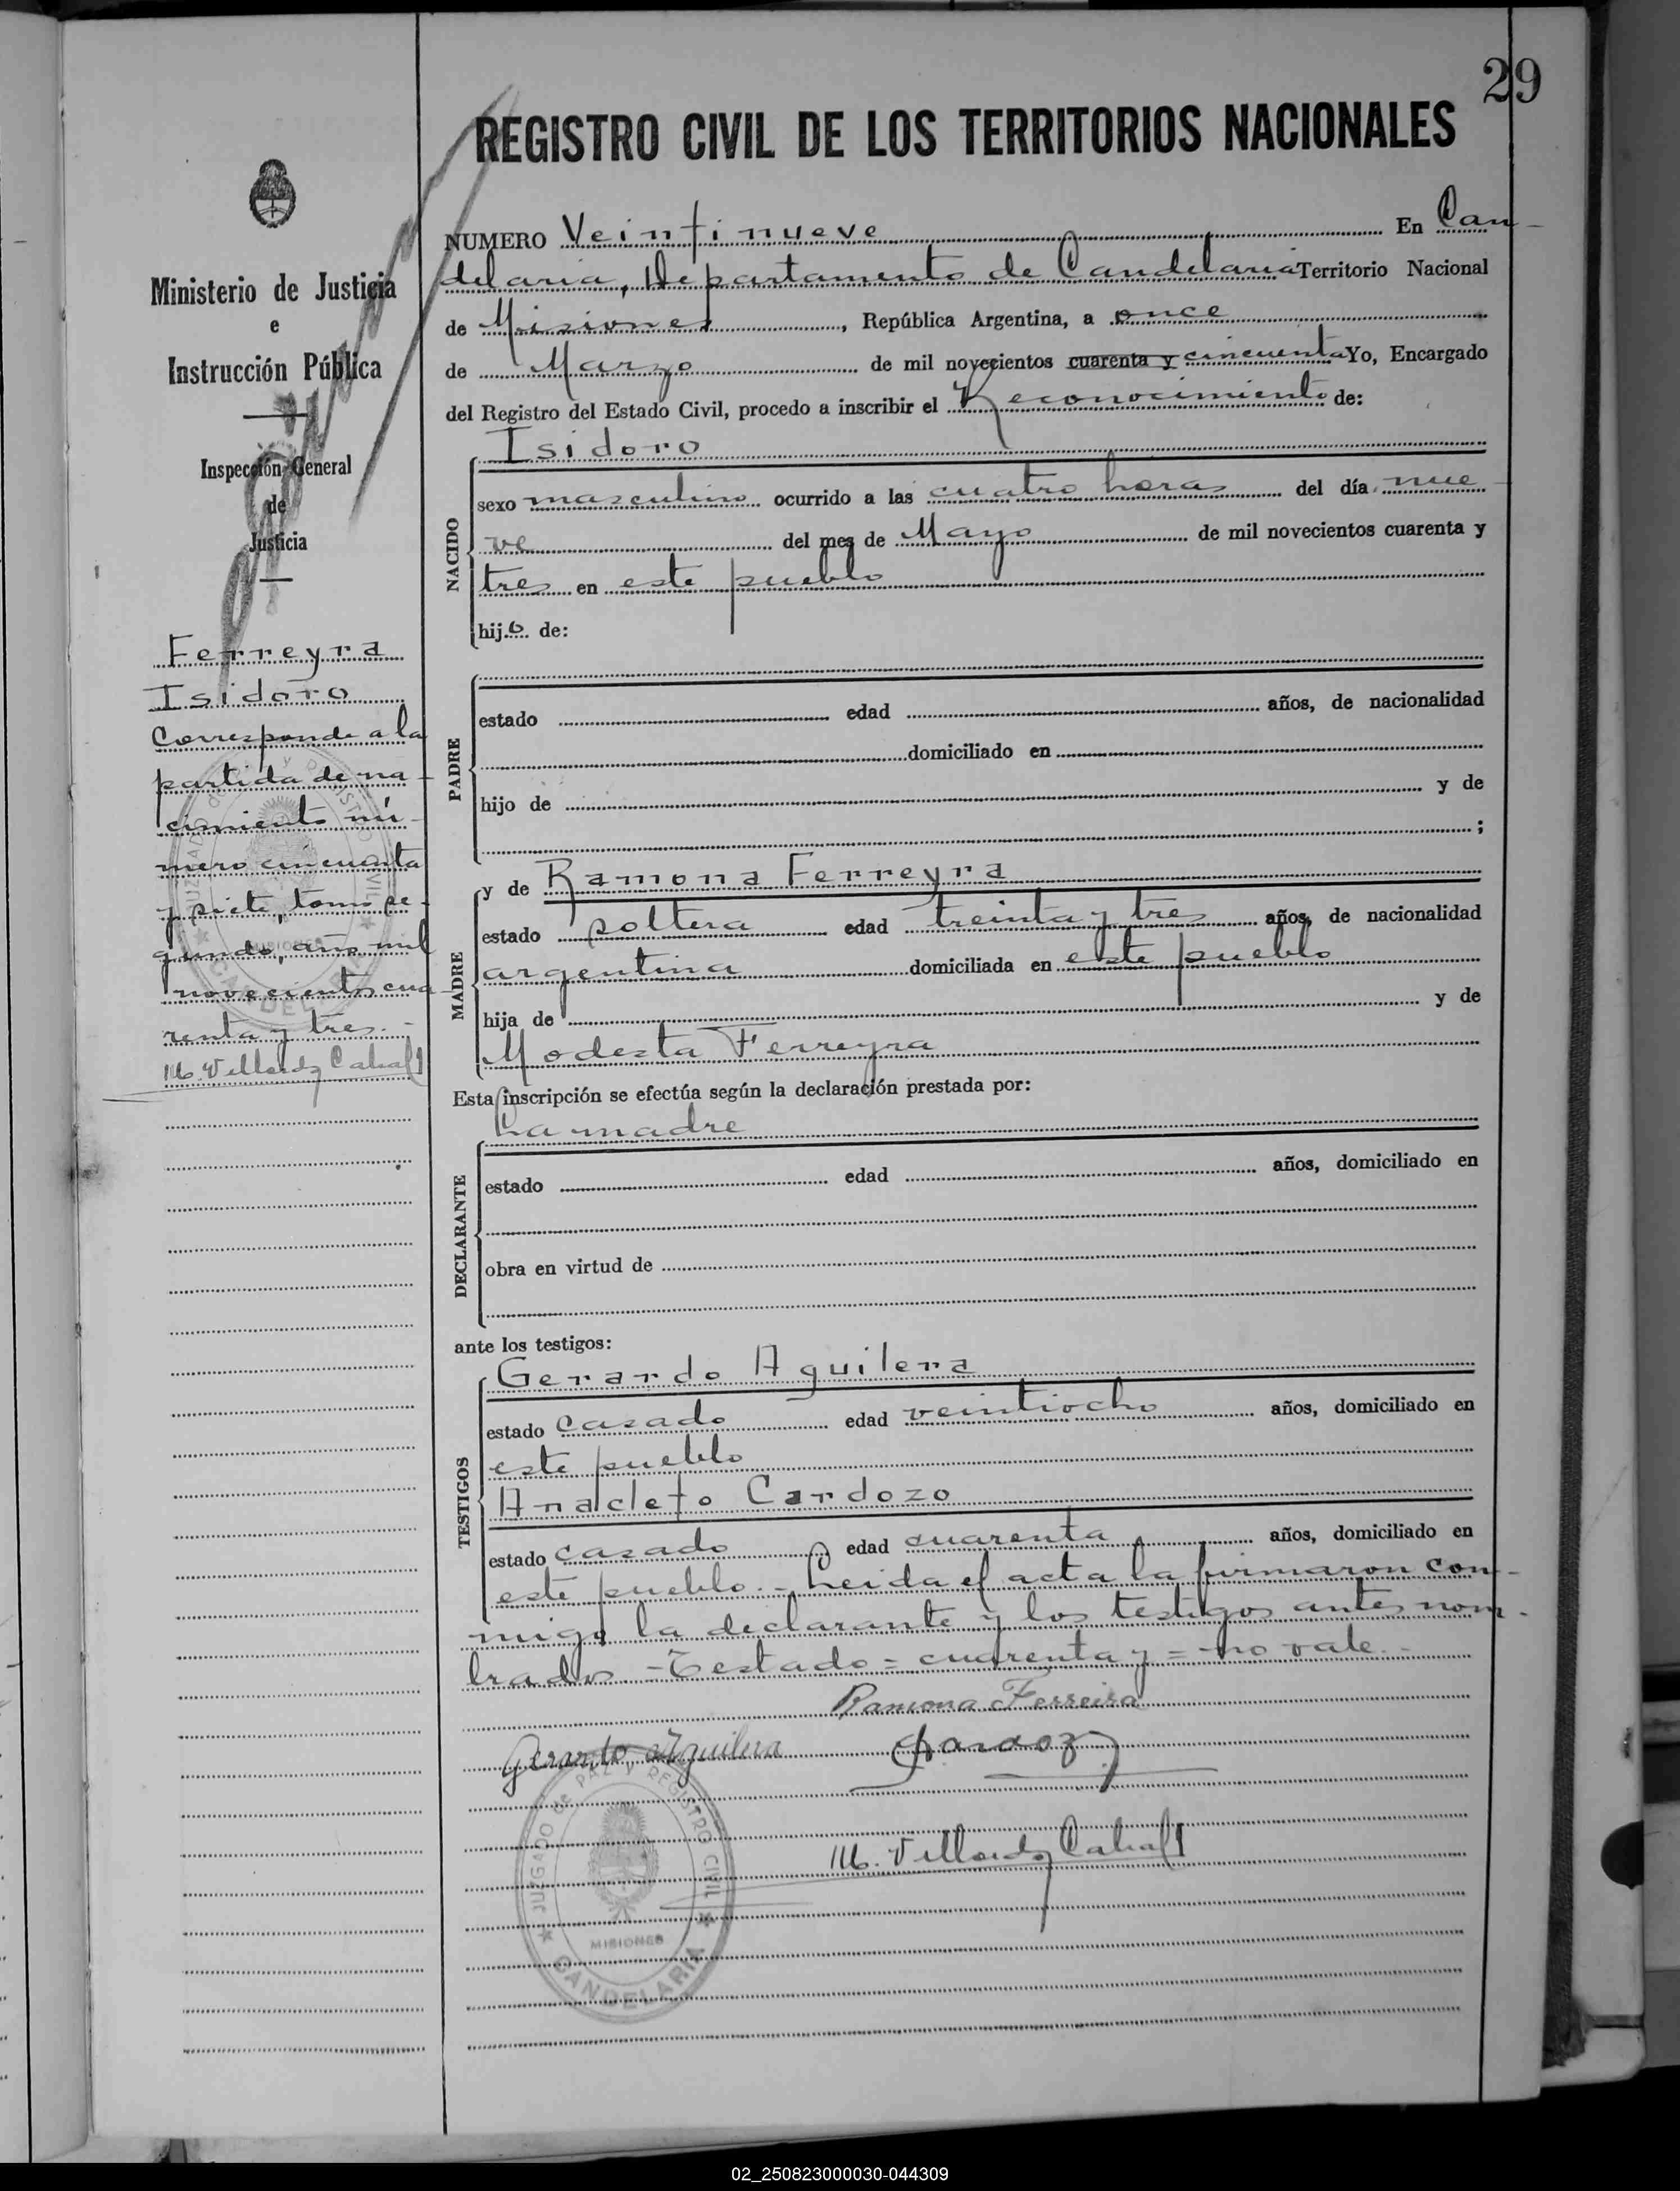 29
REGISTRO CIVIL DE LOS TERRITORIOS NACIONALES
Ministerio de Justicia
e
Instrucción Pública
Inspección General
de
Justicia
Ferreyra
Isidoro
Corresponde a la
partida de na-
cimiento nú-
mero cincuenta
y siete, tomo se-
gundo, año mil
novecientos cua-
renta y tres.-
NUMERO Veintinueve En Can-
delaria, Departamento de Candelaria Territorio Nacional
de Misiones, República Argentina, a once
de Marzo de mil novecientos cuarenta y cincuenta Yo, Encargado
del Registro del Estado Civil, procedo a inscribir el Reconocimiento de:
NACIDO
Isidoro
sexo masculino ocurrido a las cuatro horas del día nue-
ve del mes de Mayo de mil novecientos cuarenta y
tres en este pueblo
hijo de:
PADRE
estado edad años, de nacionalidad
domiciliado en
hijo de y de
;
MADRE
y de Ramona Ferreyra
estado soltera edad treinta y tres años, de nacionalidad
argentina domiciliada en este pueblo
hija de y de
Modesta Ferreyra
Esta inscripción se efectúa según la declaración prestada por:
DECLARANTE
La madre
estado edad años, domiciliado en
obra en virtud de
ante los testigos:
TESTIGOS
Gerardo Aguilera
estado casado edad veintiocho años, domiciliado en
este pueblo
Anacleto Cardozo
estado casado edad cuarenta años, domiciliado en
este pueblo.- Leida el acta la firmaron con-
migo la declarante y los testigos antes nom-
brados.-Testado=cuarenta y=no vale.-
Ramona Ferreira
Gerardo Aguilera
JUZGADO de PAZ Y REGISTRO CIVIL
MISIONES
CANDELARIA
02_250823000030-044309